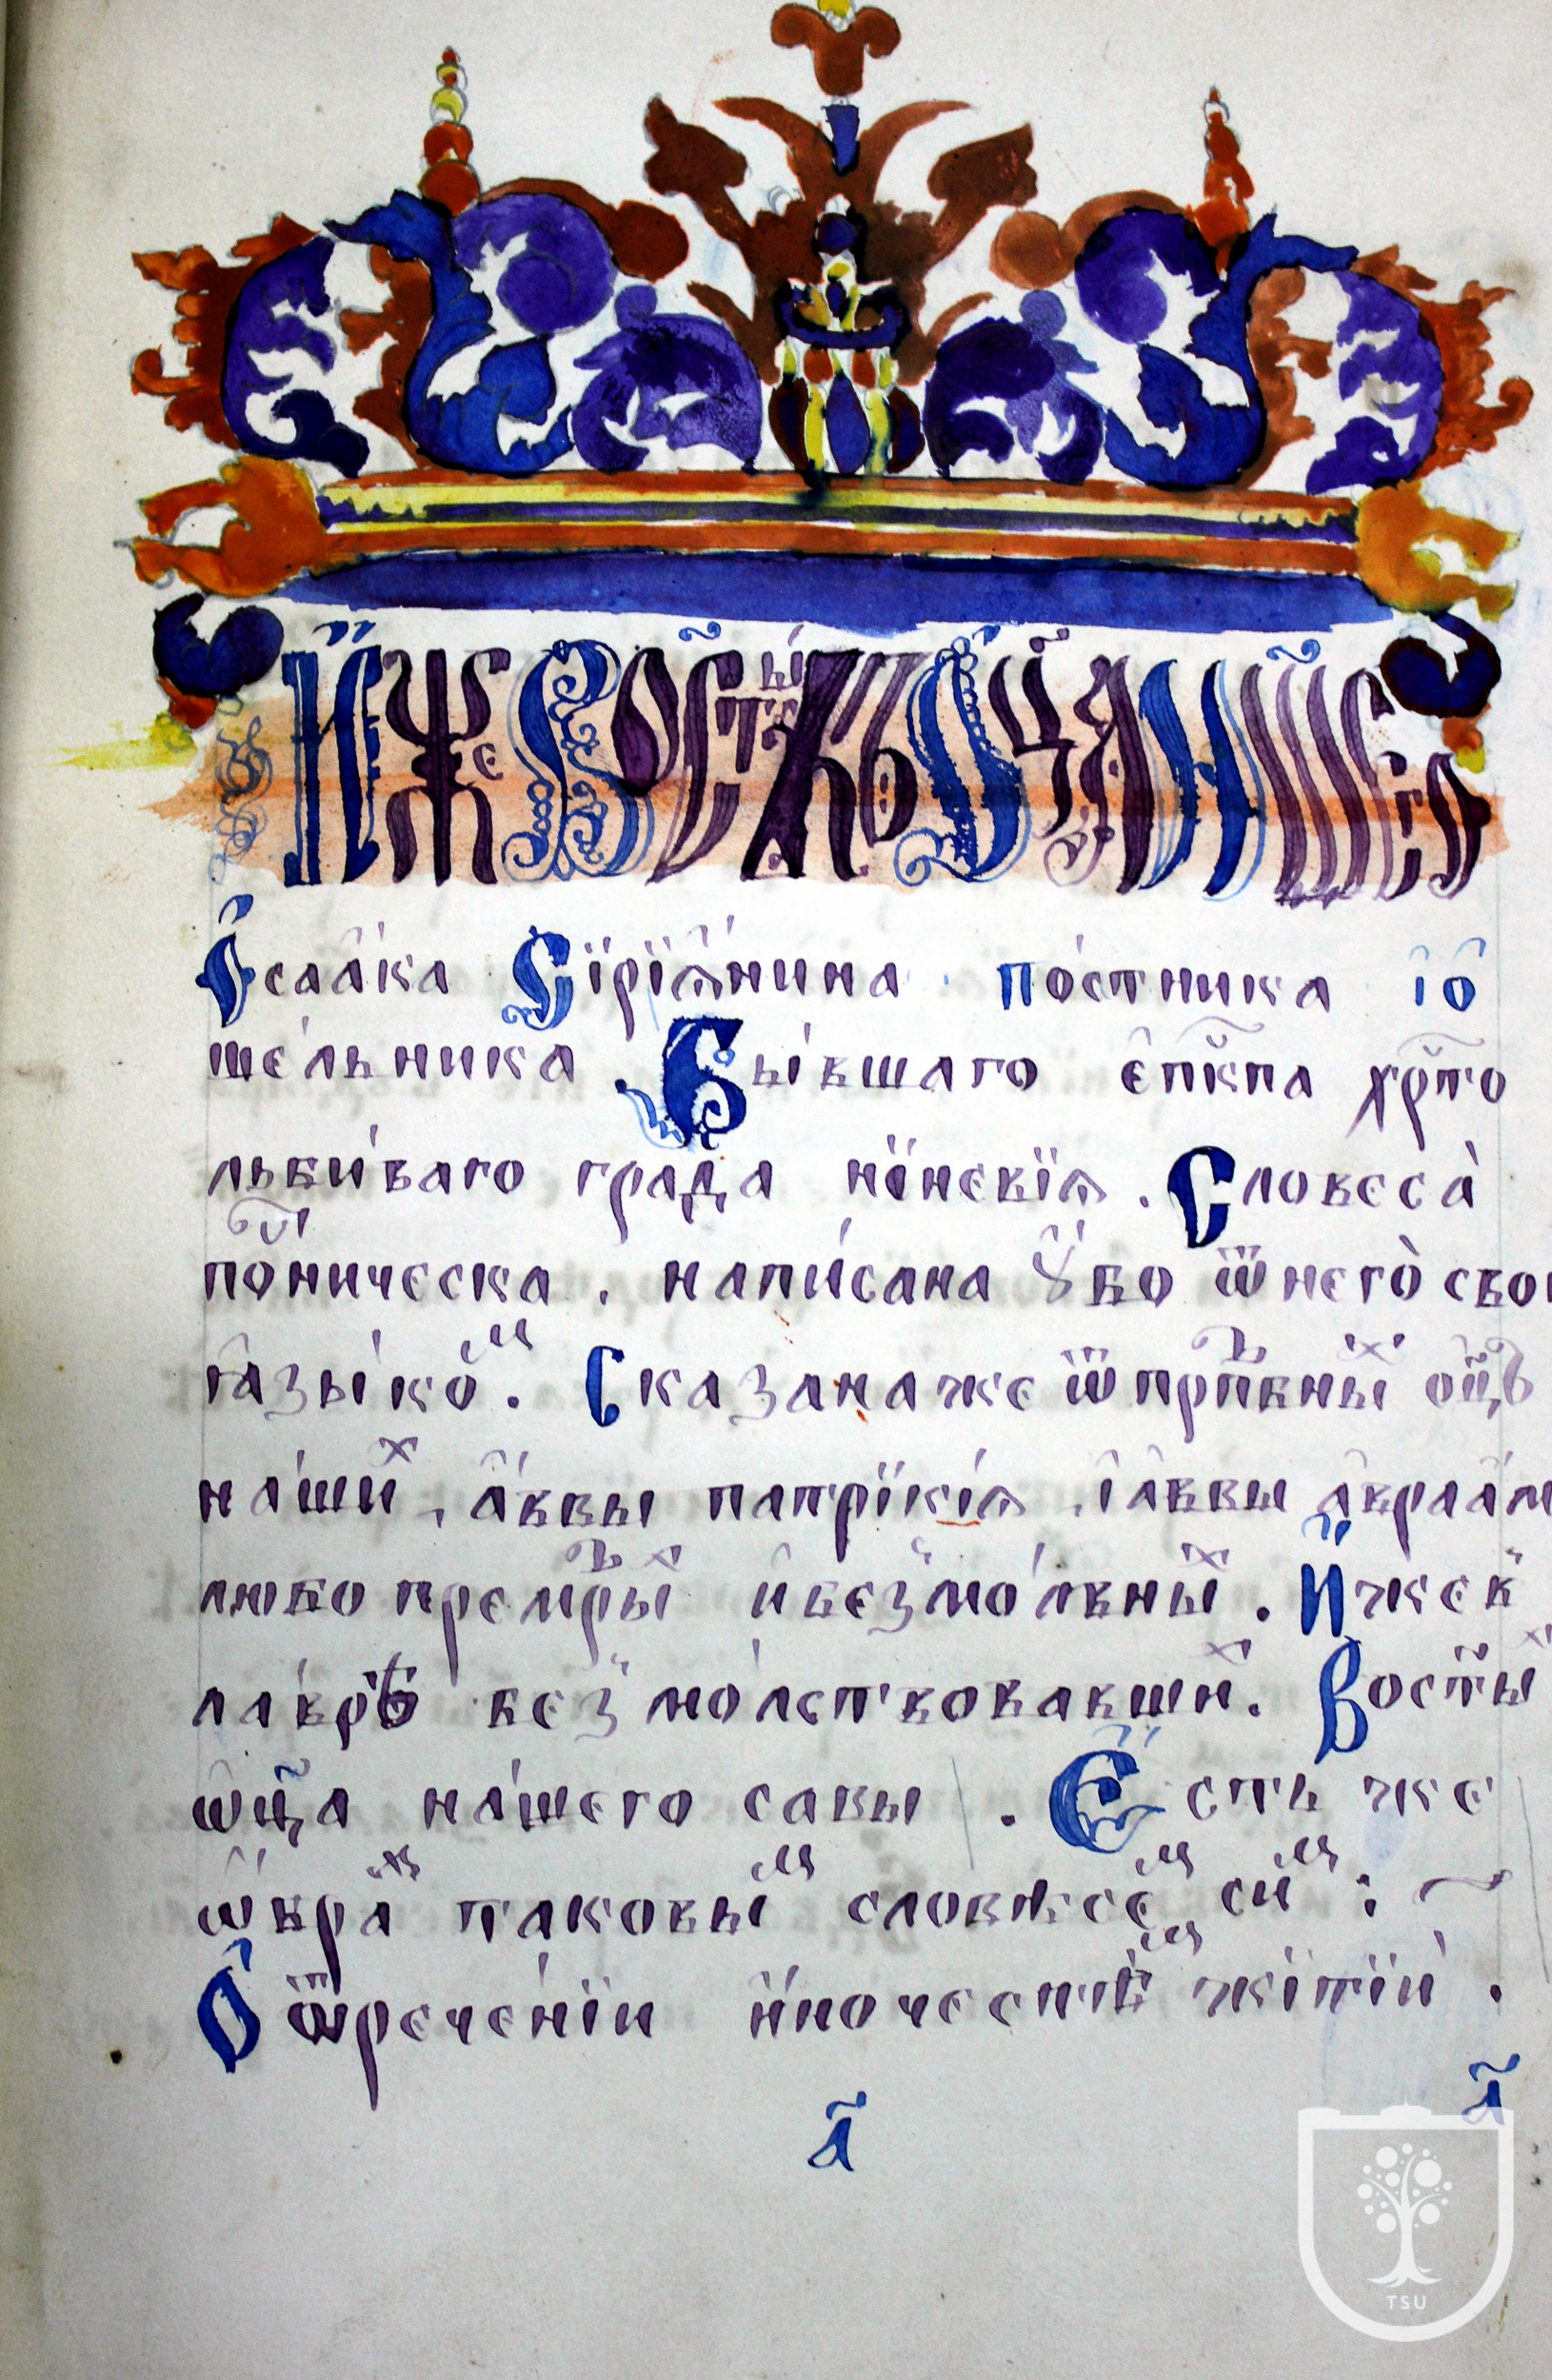 И҆́же во ст҃ы́хъ ѻ҆ц҃а̀ на́шегѡ
І҆саа́ка Сі́рїѧнина . по́стника і҆ ѻ҆
ше́льника . Бы́вшаго є҆пⷭ҇кпа хрⷭ҇то
льби́ваго града ні́невїѧ . Словеса̀
поⷭ҇тническа . напи́сана ꙋ҆́бо ѿнего̀ сво
ꙗзы́коⷨ . Сказана же ѿпрпⷣбныⷯ о҆ц҃ъ
на́шиⷯ , а҆́ввы патрїкі́ѧ . і҆ а҆́ввы а҆враа́м
любопремⷣрыⷯ и҆безмо́лвныⷯ . И҆́жев
ла́врѣ безмо́лствовавшиⷯ . Востⷯы
ѡ҆ц҃а на́шего савы . Є҆́сть же
ѡ҆́браⷥ таковыⷨ словесеⷨ сиⷨ : ~
Ѻ҆ ѿрече́нїи и҆́ночестѣⷨ жїтїѝ .
а҃
а҃
TSU